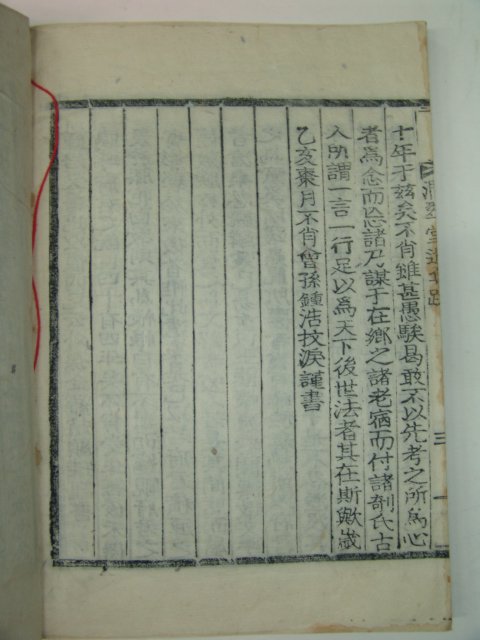 十年于玆矣不肖雖甚愚騃曷敢不以先考之所爲心
者爲念而忘諸乃謀于在鄕之諸老宿而付諸剞氏古
人所謂一言一行足以爲天下後世法者其在斯歟歲
乙亥棗月不肖曾孫鍾浩抆淚謹書
三